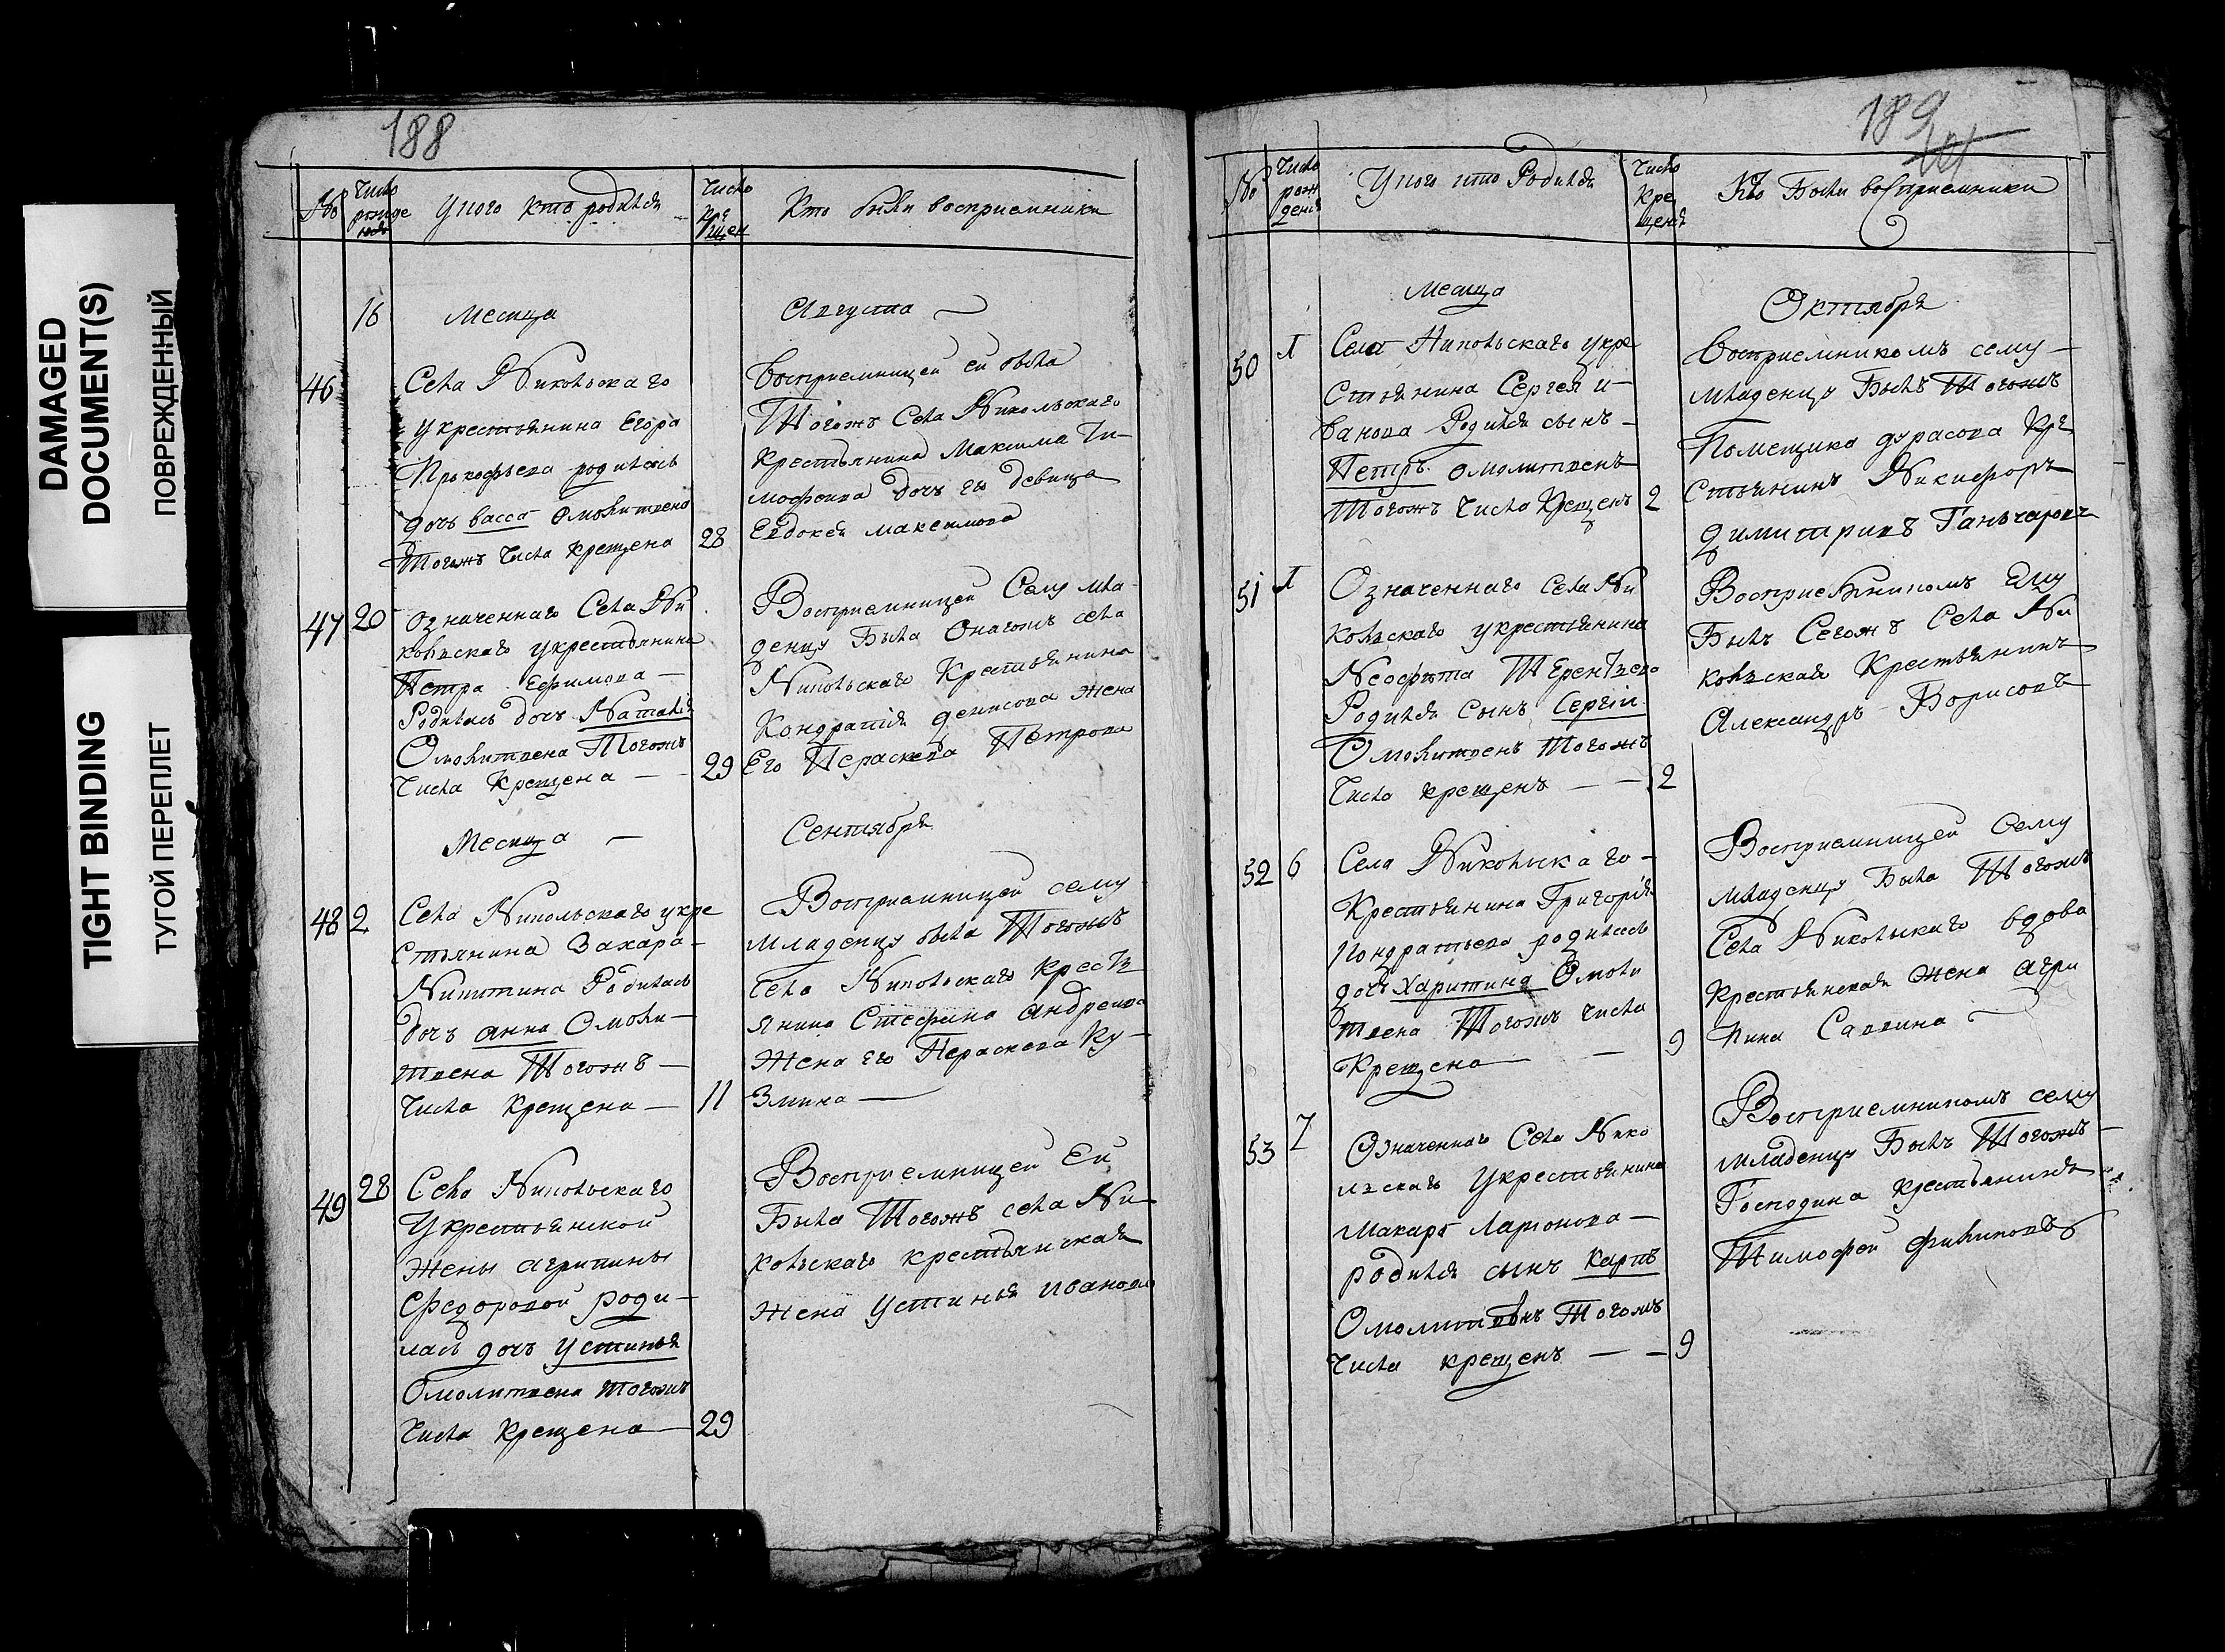 DAMAGED
DOCUMENT(S)
ПОВРЕЖДЕННЫЙ
TIGHT BINDING
ТУГОЙ ПЕРЕПЛЕТ
188
№ Число рожде У кого кто родился Число кре щен Кто были восприемники
16 Месяца Августа
46 Села Никольскаго
у крестьянина Егора
Прокофьева родилась
дочь Васса омолитвена
тогожъ числа крещена 28
Восприемницей ей была
Тогожъ Села Никольскаго
крестьянина Максима Ти-
мофеива дочь ево девица
Евдокея Максимова
47 20 Означеннаго Села Ни
кольскаго у крестьянина
Петра Ефимова —
Родилась дочь Наталья
Омолитвена Тогожъ
Числа Крещена — 29
Восприемницей Сему мла-
денцу Была Онагожъ села
Никольскаго Крестьянина
Кондратія Денисова жена
Его Параскева Петрова
Месяца — Сентября
48 2 Села Никольскаго у кре
стьянина Захара-
Никитина Родилась
дочь Анна Омоли-
твена Тогожъ —
Числа Крещена — 11
Восприемницей сему
Младенцу была Тогожъ
Села Никольскаго Кресть
янина Стефана Андреива
Жена его Пераскева Ку-
змина —
49 28 Села Никольскаго
У крестьянской
Жены Агрипины
Федоровой роди-
лась дочь Устинья
Омолитвена тогожъ
Числа Крещена — 29
Восприемницей Ей
Была Тогожъ села Ни-
кольскаго крестьянская
Жена Устинья Иванова
189
№ Число рож дения У кого кто Родился Число Кре щения Кто Были восприемники
Месяца Октября
50 1 Села Никольскаго у кре
стьянина Сергея И-
ванова Родился сынъ -
Петръ омолитвенъ
Тогожъ Числа Крещенъ 2
Восприемникомъ сему —
младенцу Былъ Тогожъ
Помещика Дурасова Кре
стьянинъ Никифоръ
Димитривъ Ганьчаровъ
51 1 Означеннаго села Ни
кольскаго у крестьянина
Неофита Терентьева
Родился Сынъ Сергій
Омолитвенъ Тогожъ
Числа крещенъ — — 2
Восприемникомъ Ему
Былъ Сегожъ Села Ни
кольская Крестьянинъ
Александръ Борисовъ
52 6 Села Никольскаго-
Крестьянина Григорія
Кондратьева родилась
дочь Харитина Омоли
твена Тогожъ числа
Крещена — — 9
Восприемницей Сему
Младенцу Была Тогожъ
Села Никольскаго вдова
Крестьянская жена Агри
пина Саввина
53 7 Означеннаго Села Нико
льскаго У крестьянина
Макара Ларионова —
родился сынъ Карпъ
Омолитвенъ Тогожъ
Числа крещенъ — — 9
Восприемникомъ сему
младенцу Былъ Тогожъ —
Господина Крестьянинъ
Тимофей Филиповъ